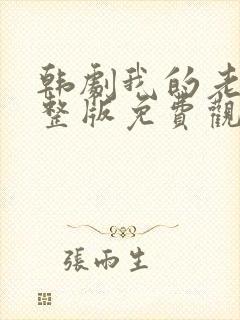 韩劇我的老
整版免費觀
張雨生